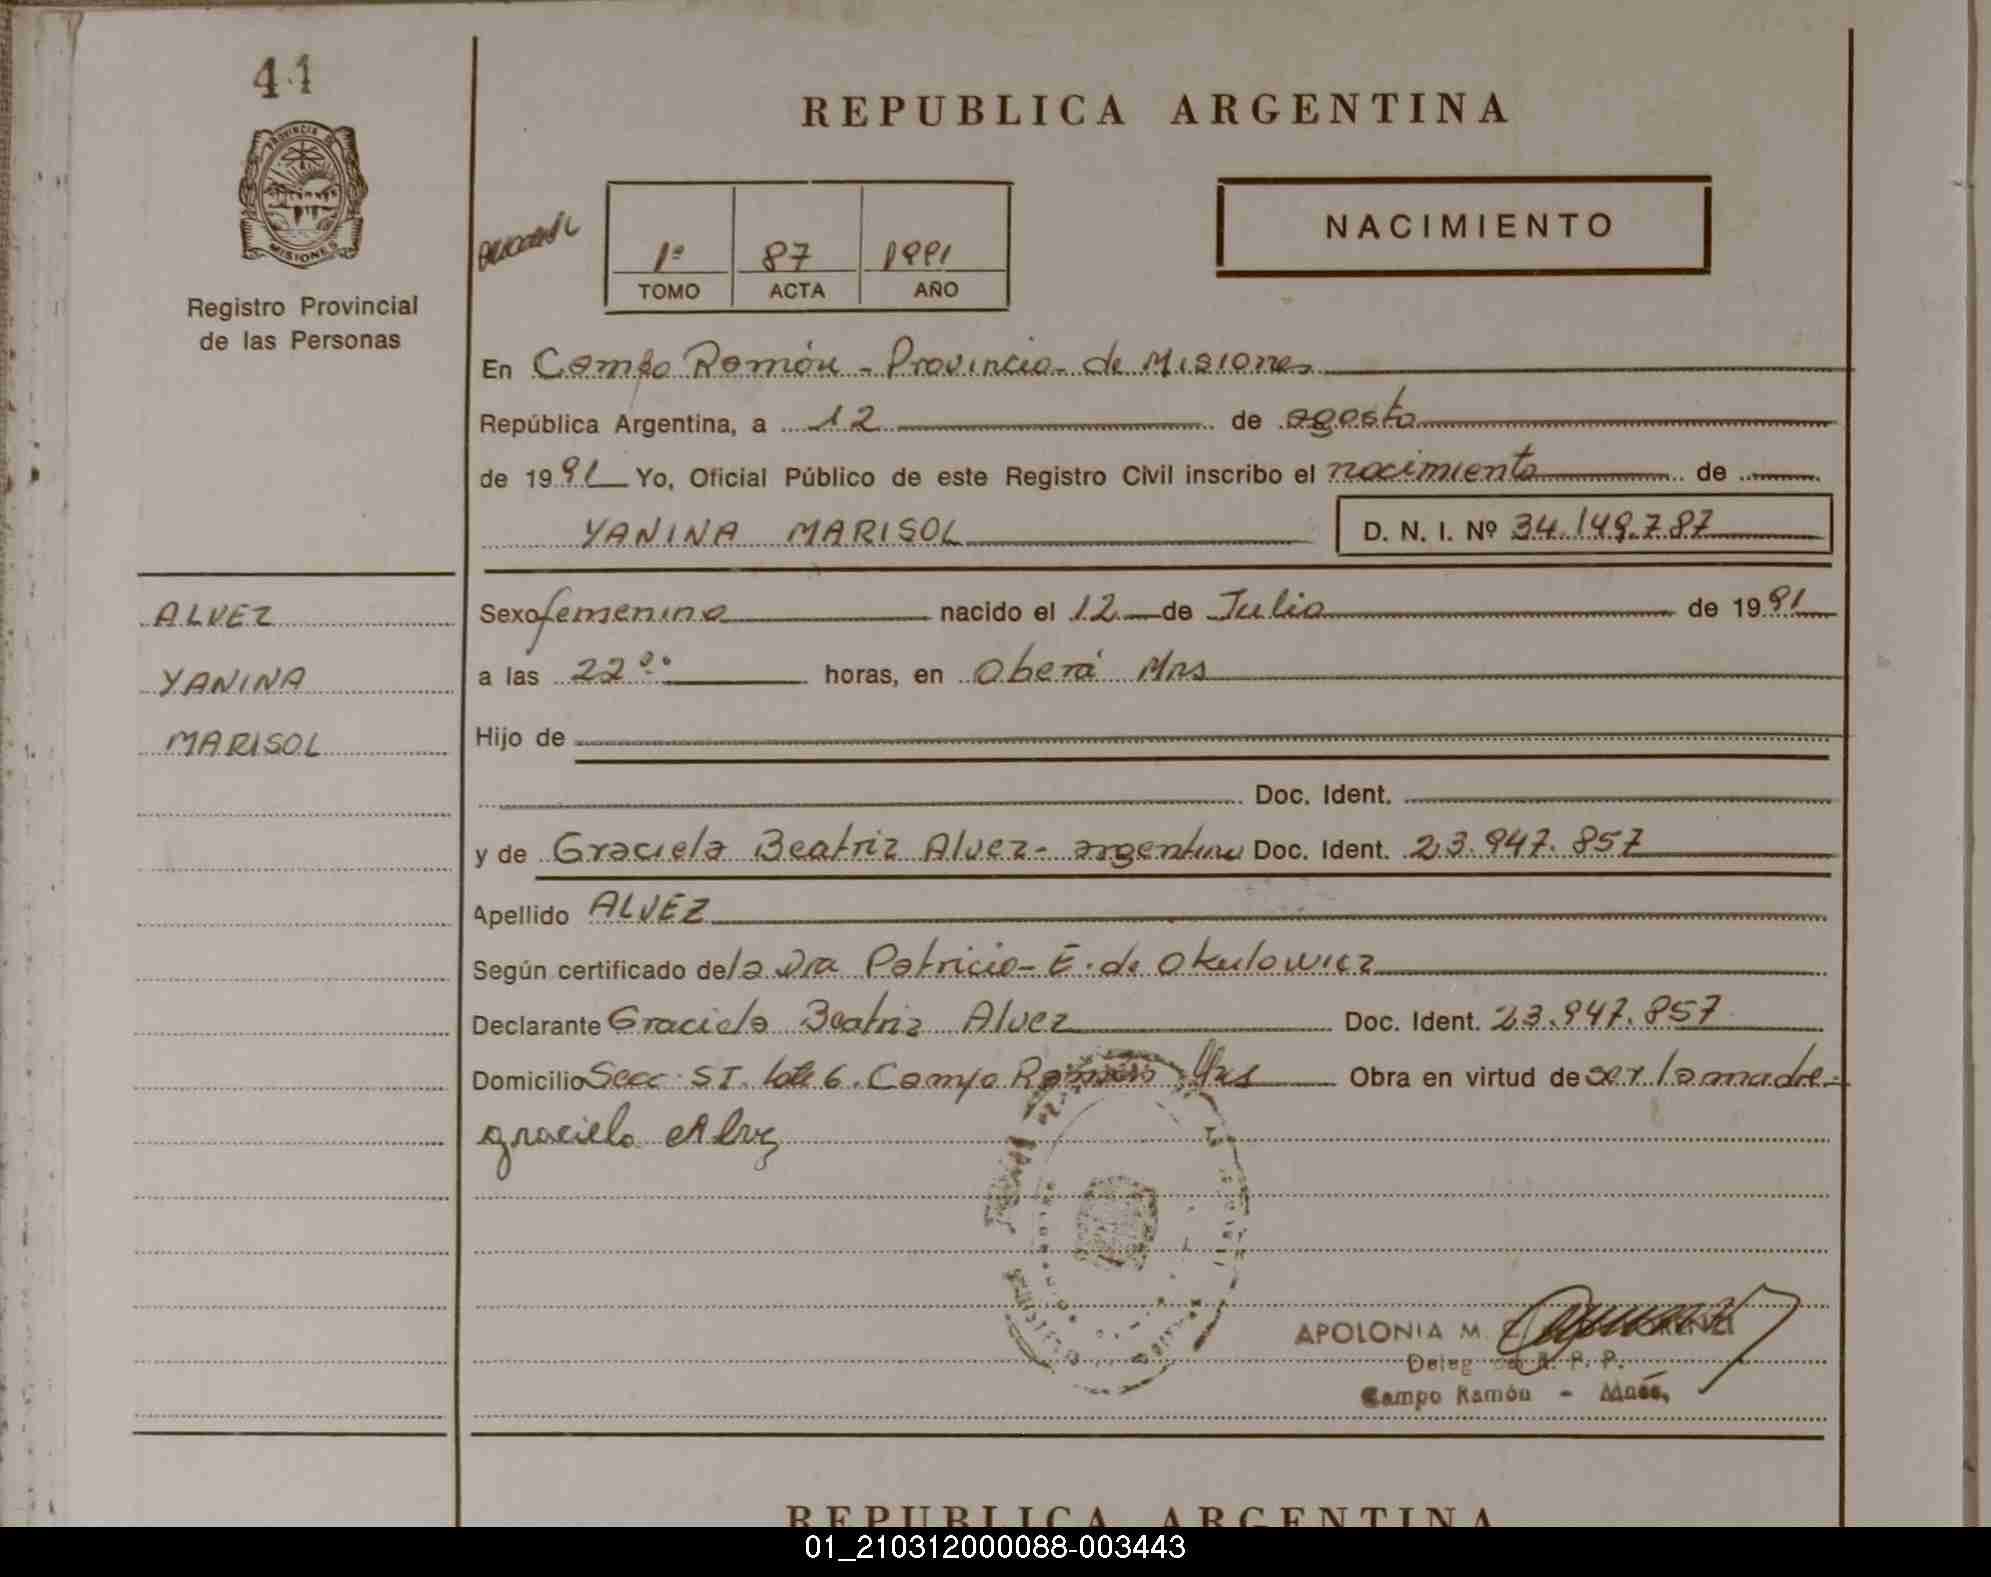 41
PROVINCIA DE
MISIONES
Registro Provincial
de las Personas
REPUBLICA ARGENTINA
NACIMIENTO
1º 87 1991
TOMO ACTA AÑO
En Campo Ramón - Provincia de Misiones
República Argentina, a 12 de agosto
de 1991 Yo, Oficial Público de este Registro Civil inscribo el nacimiento de
YANINA MARISOL D. N. I. Nº 34.149.787
ALVEZ
YANINA
MARISOL
Sexo femenino nacido el 12 de Julio de 1991
a las 22⁰⁰ horas, en Oberá Mns
Hijo de
Doc. Ident.
y de Graciela Beatriz Alvez - argentina Doc. Ident. 23.947.857
Apellido ALVEZ
Según certificado de la Dra Patricia E. de Okulowicz
Declarante Graciela Beatriz Alvez Doc. Ident. 23.947.857
Domicilio Secc. SI. lote 6. Campo Ramón Mns Obra en virtud de ser la madre -
graciela Alvez
APOLONIA M.
Deleg R. P. P.
Campo Ramón - Mnes.
REPUBLICA ARGENTINA
01_210312000088-003443